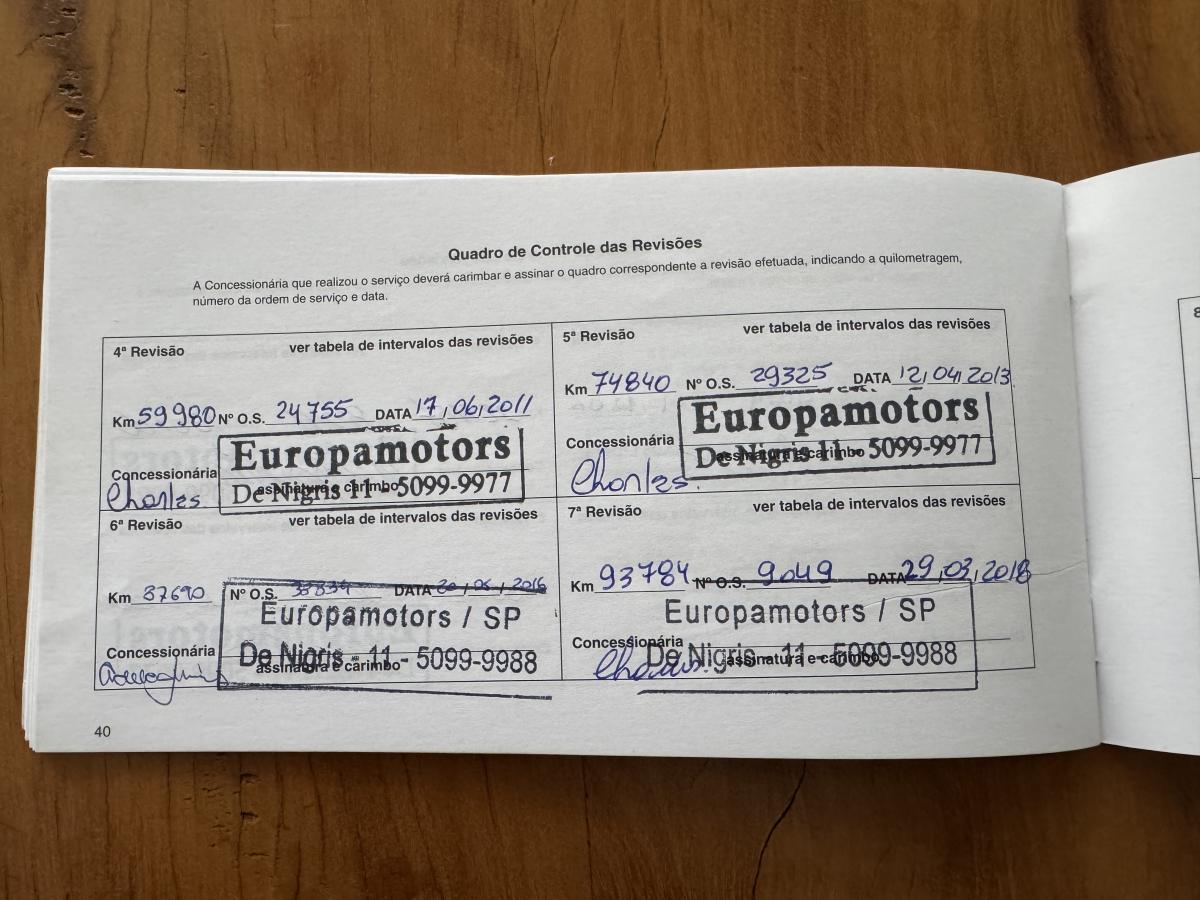 Quadro de Controle das Revisões
A Concessionária que realizou o serviço deverá carimbar e assinar o quadro correspondente a revisão efetuada, indicando a quilometragem,
número da ordem de serviço e data.
4ª Revisão ver tabela de intervalos das revisões
Km 59980 Nº O.S. 24755 DATA 17,06,2011
Europamotors
Concessionária
assinatura e carimbo
De Nigris 11 - 5099-9977
Charles
5ª Revisão ver tabela de intervalos das revisões
Km 74840 Nº O.S. 29325 DATA 12,04,2013
Europamotors
Concessionária
assinatura e carimbo
De Nigris 11 - 5099-9977
Charles.
6ª Revisão ver tabela de intervalos das revisões
Km 87690 Nº O.S. DATA 2016
Europamotors / SP
Concessionária
De Nigris - 11 - 5099-9988
assinatura e carimbo
7ª Revisão ver tabela de intervalos das revisões
Km 93784 Nº O.S. 9049 DATA 29,03,2018
Europamotors / SP
Concessionária
De Nigris - 11 - 5099-9988
assinatura e carimbo
40
8